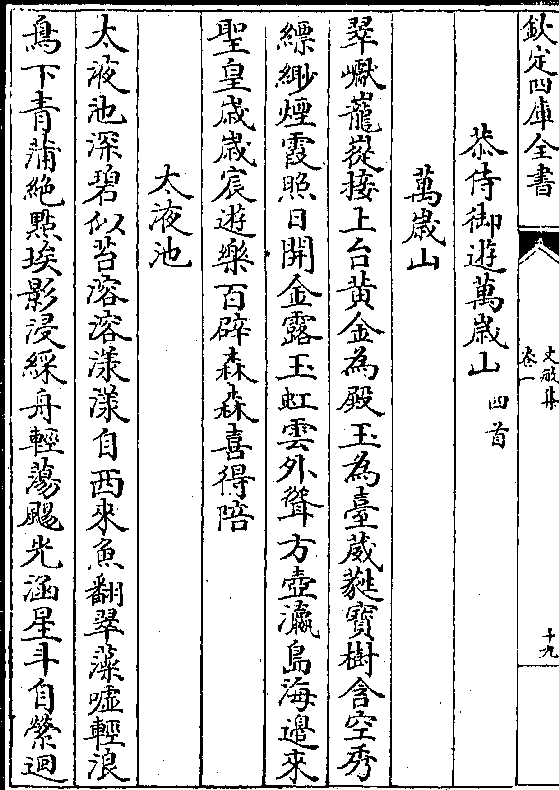 欽定四庫全書
文敏集
卷一
十九
恭侍御遊萬歲山四首
萬歲山
翠巘巃嵸接上台黃金為殿玉為臺葳蕤寶樹含空秀
縹緲煙霞照日開金露玉虹雲外聳方壺瀛島海邉來
聖皇歲歲宸遊樂百辟森森喜得陪
太液池
太液池深碧似苔溶溶漾漾自西來魚翻翠藻噓輕浪
鳧下青蒲絶點埃影浸綵舟輕蕩颺光涵星斗自縈迴